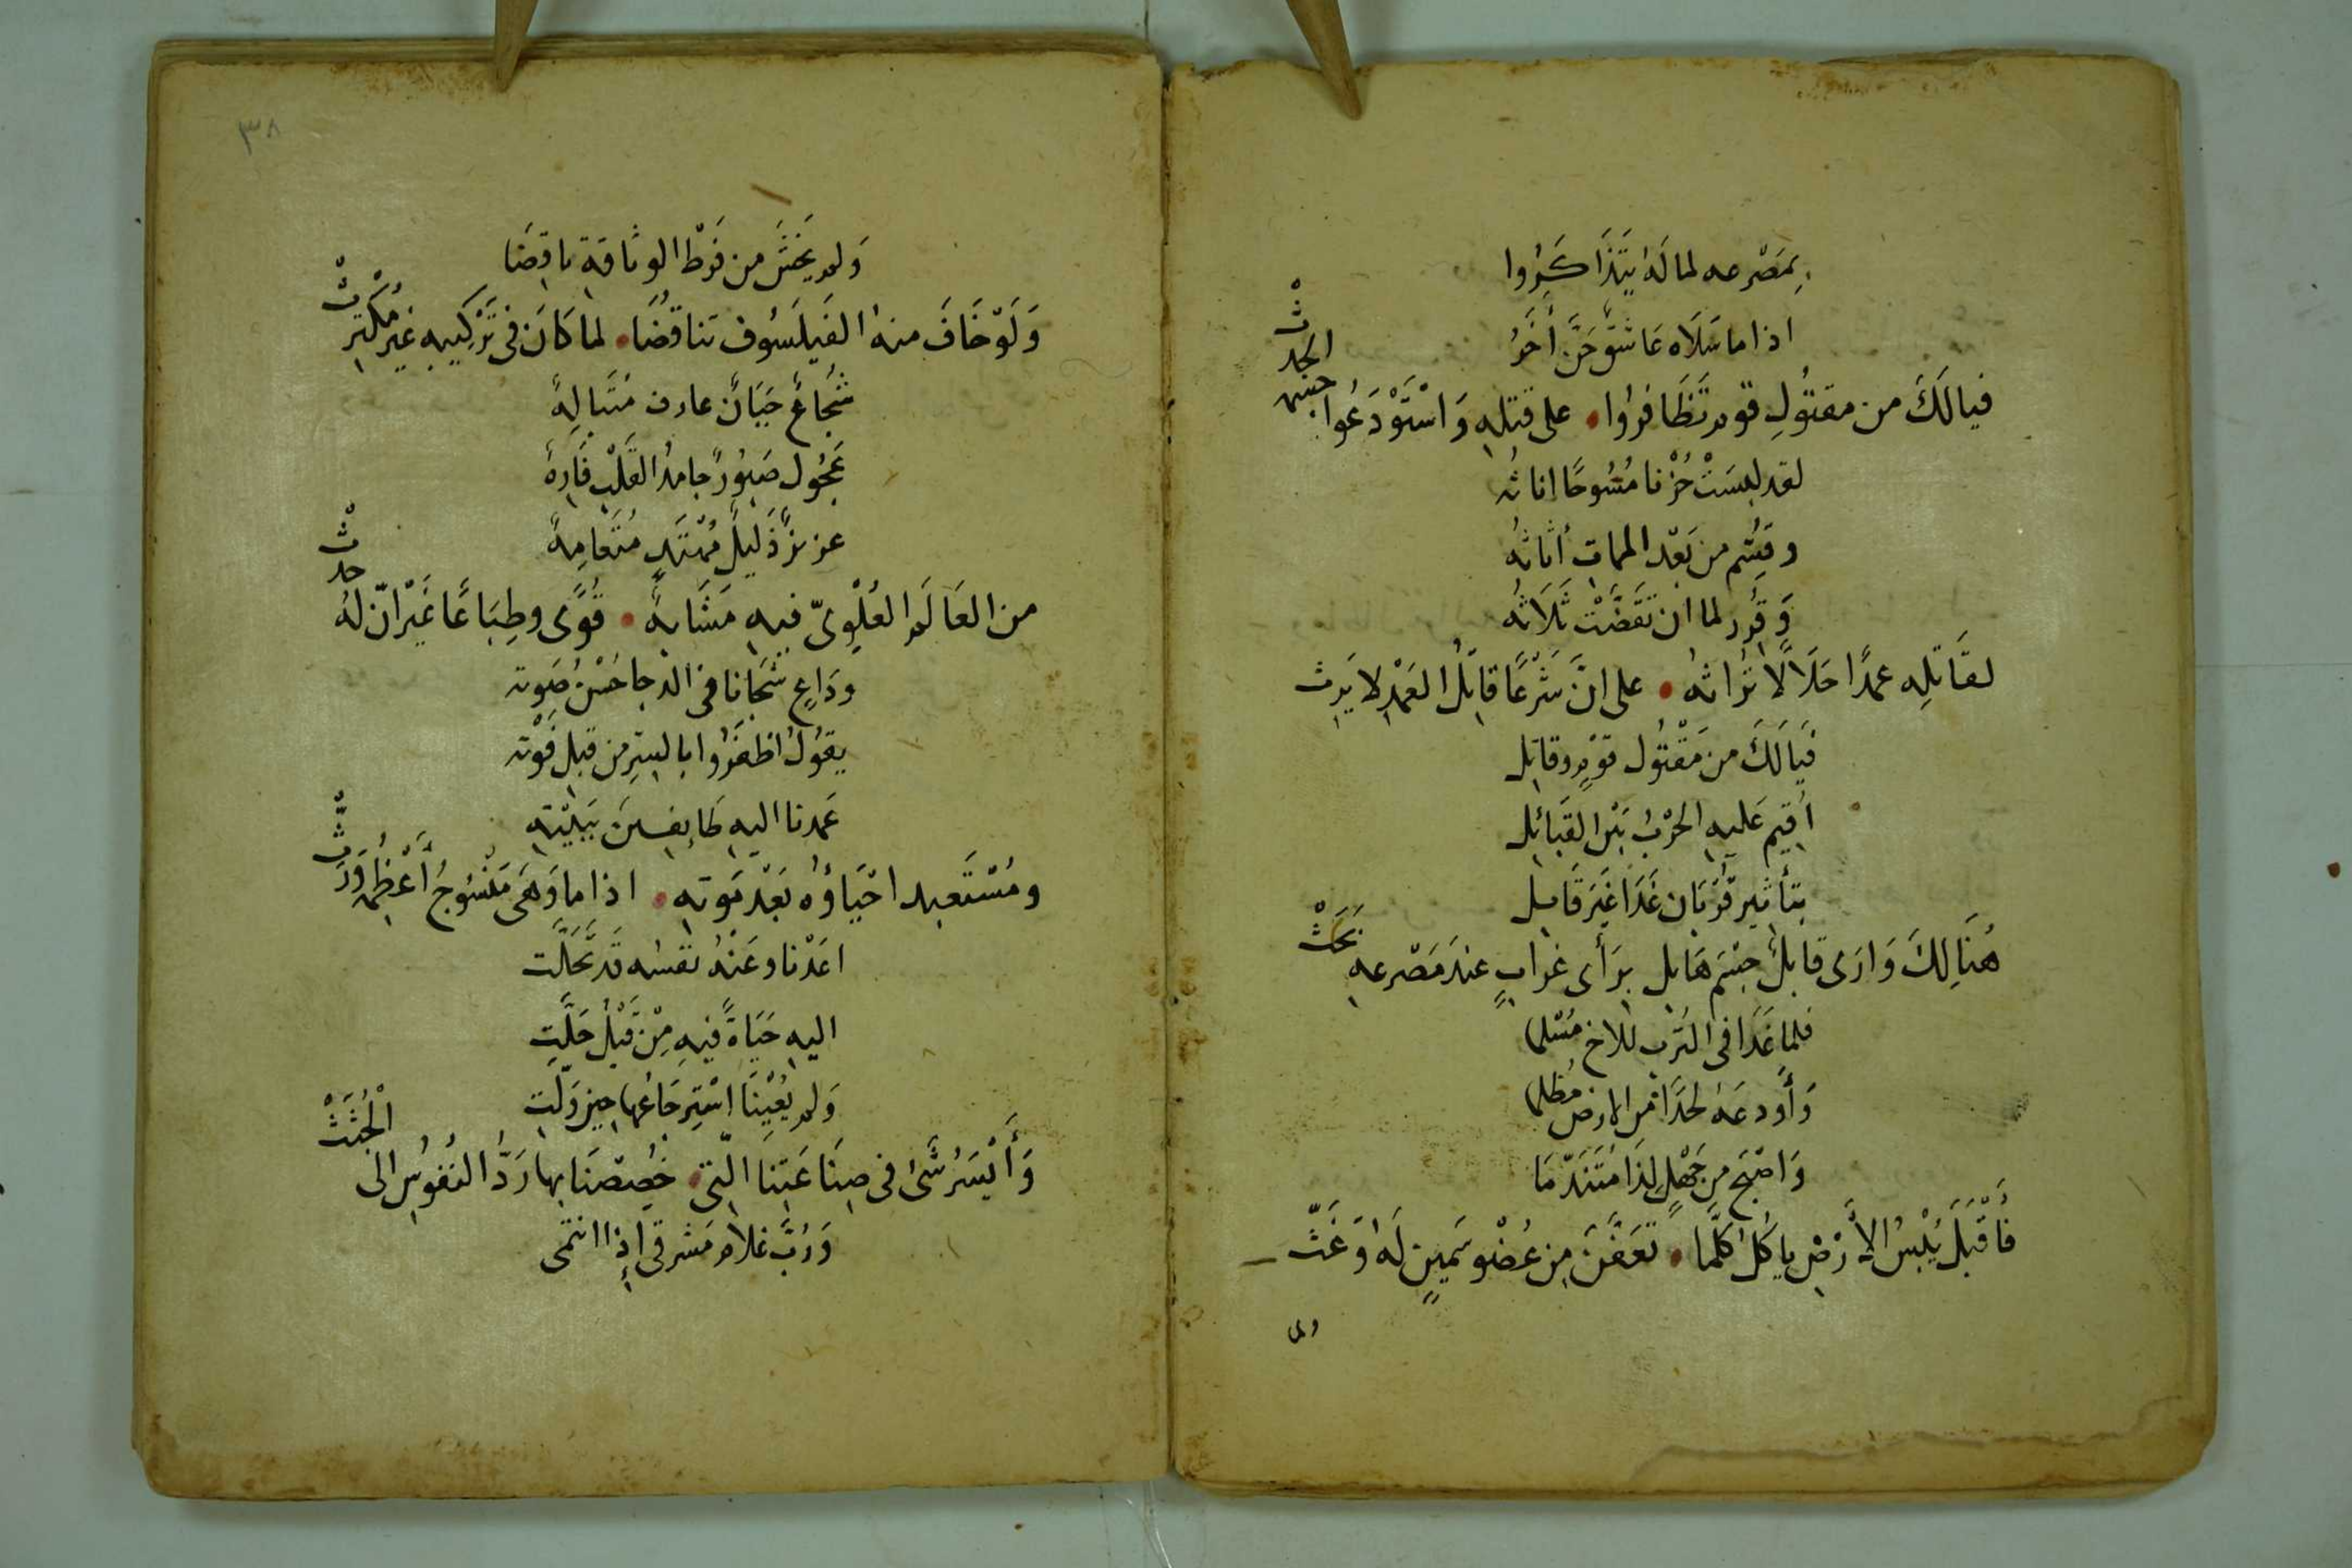 بِمَصْرعه لما لَهُ يَتَذَاكَرُوا
اذا ما سَلَاه عَاشقٌ حَنَّ أَخَرُ
فيا لَكَ من مقتُولِ قوم تَظَافروُا • على قتله وَاسْتَوْدَعُوا جسمه الجدثْ
لقد لبسَتْ حُزْنا مُسُوحًا اناثُه
وقسِّم من بَعْد الممات أثاثُه
وَقُرِر لما ان تَقَضَّتْ ثَلَاثُه
لقَاتلِه عمدًا حَلَالًا تُراثه • على انَّ شَرْعًا قاتِلُ العَمْدِ لا يَرِث
فَيَا لَكَ من مَقْتُول قَوْمٍ وقاتِل
اُقيم عَليه الحَرْبُ بَيْن القَبائل
بتأثير قُرْبَان غَدَا غَيَر قَابل
هُنَالِكَ وَارَى قابلٌ جسْمَ هَابل برَأى غرابٍ عندَ مَصْرعه بَحَثْ
فلما غَدَا فى التُرب للاخ مُسْلما
وَأَودعَهُ لحْدًا من الارض مُظلما
وَاصْبَحَ مِن جَهْلٍ لِذَا مُتَنَدّمَا
فَأَقْبَلَ يُلْبسُ الأَرْضِ ياكُل كلَّما • تعَفَّنَ مِن عُضْو سَمِينٍ لَهُ وَغَثّ
ولم
٣٨
وَلم يَخشَ من فَرْط الوثاقةِ ناقِضَا
وَلَوْ خَافَ منهُ الفَيلَسُوف تناقُضَا • لما كَانَ فى تَرْكيبِه غَيْر مُكْتَرِثْ
شُجَاعٌ جَبَانٌ عارف مُتَبالِهُ
عَجُول صَبُورٌ جامدُ القَلْبِ فَارِهُ
عزيزٌ ذَليلٌ مُهْتَدٍ مُتَعَامِهُ
من العَالَم العُلْوِىّ فيه مَشَابهُ • قُوًى وطِبَاعًا غَيْرَ انّ لهُ حدثْ
ودَاعٍ شَجَانا فى الدجا حُسْنُ صَوته
يقوُلُ اظفَرُوا بالسِرِّ من قَبل فَوْته
عَمدنا اليه طَايفينَ ببَيْتِه
ومُسْتَعبد احْيَاؤُه بَعْد مَوته • اذا ما وَهَى مَنْسُوجُ أَعْظُمه وَرَثّ
اعَدْنا وعَنْهُ نَفسُه قَد تحَلَّت
اليه حَيَاةً فيهِ مِنْ قَبْلُ حَلَّتِ
وَلم يُعْيِنَا اسْتِرجَاعُها حِينَ وَلّت
وَأَيْسَرُ شَىْءٍ فى صِنَاعَتِنَا الّتى • خُصِصْنَا بها رَدُّ النفُوسِ الى الْجُثَثْ
وَرُبَّ غلام مَشرقىٍ إذا انتمى